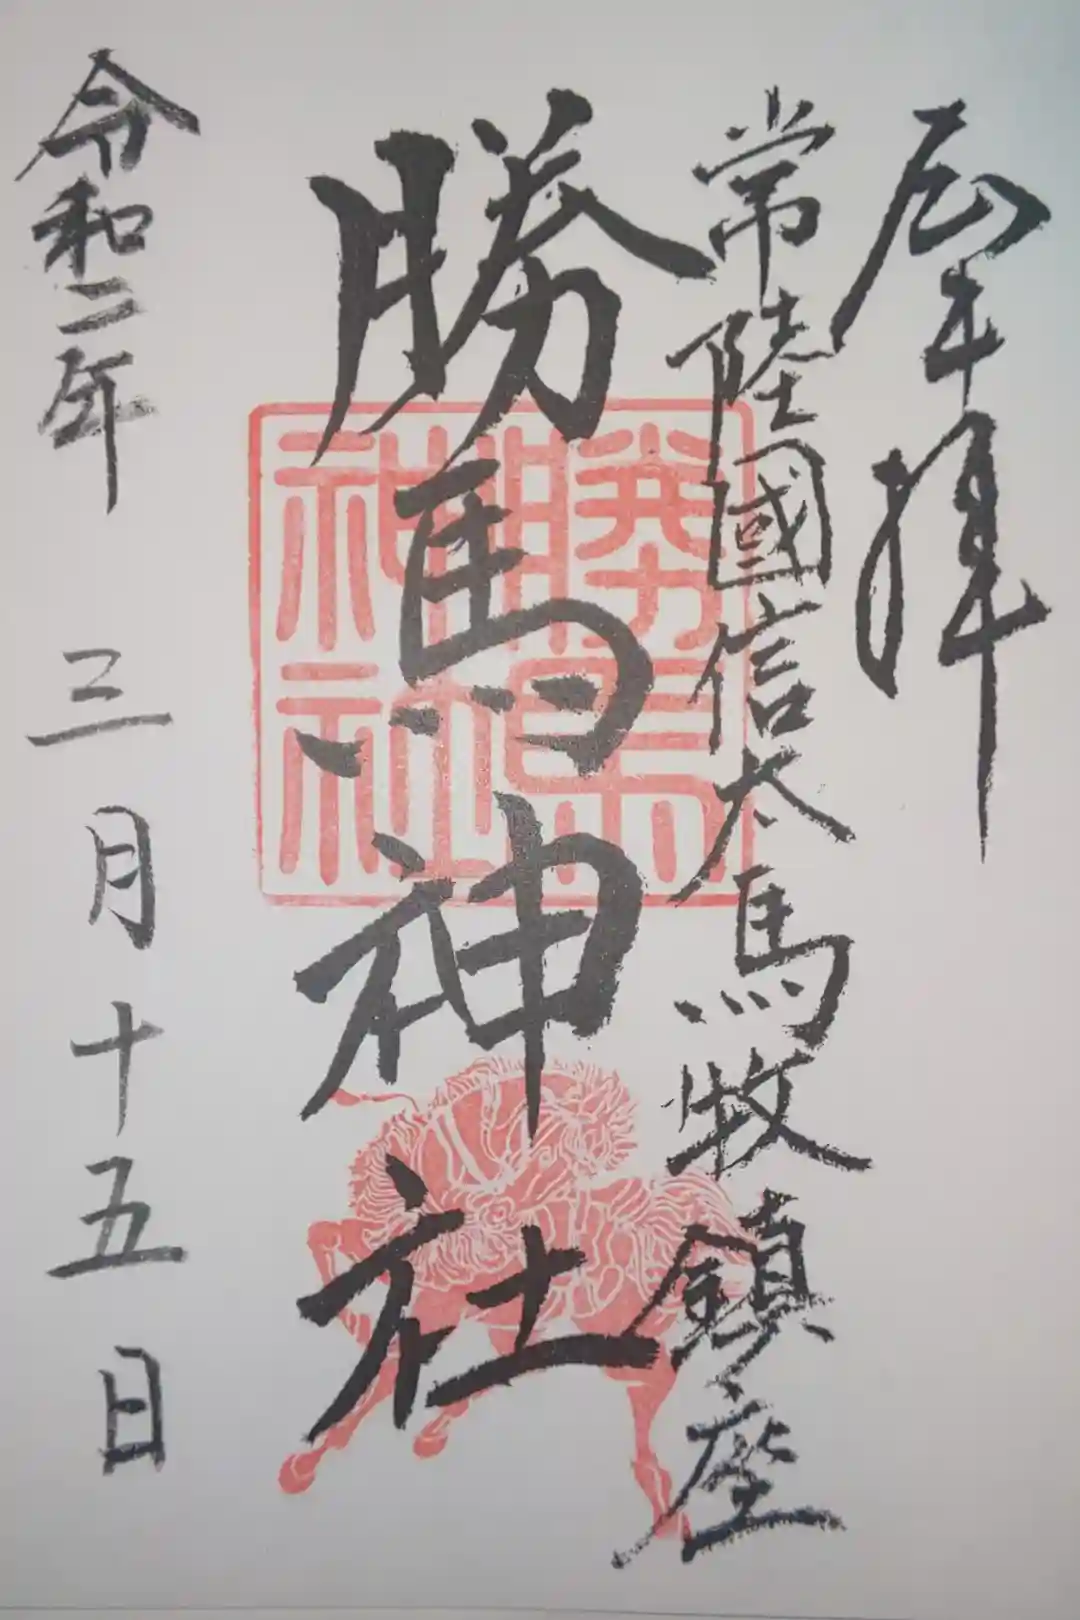 奉拝
常陸國信太馬牧鎮座
勝馬神社
令和二年 三月十五日
勝馬
神社